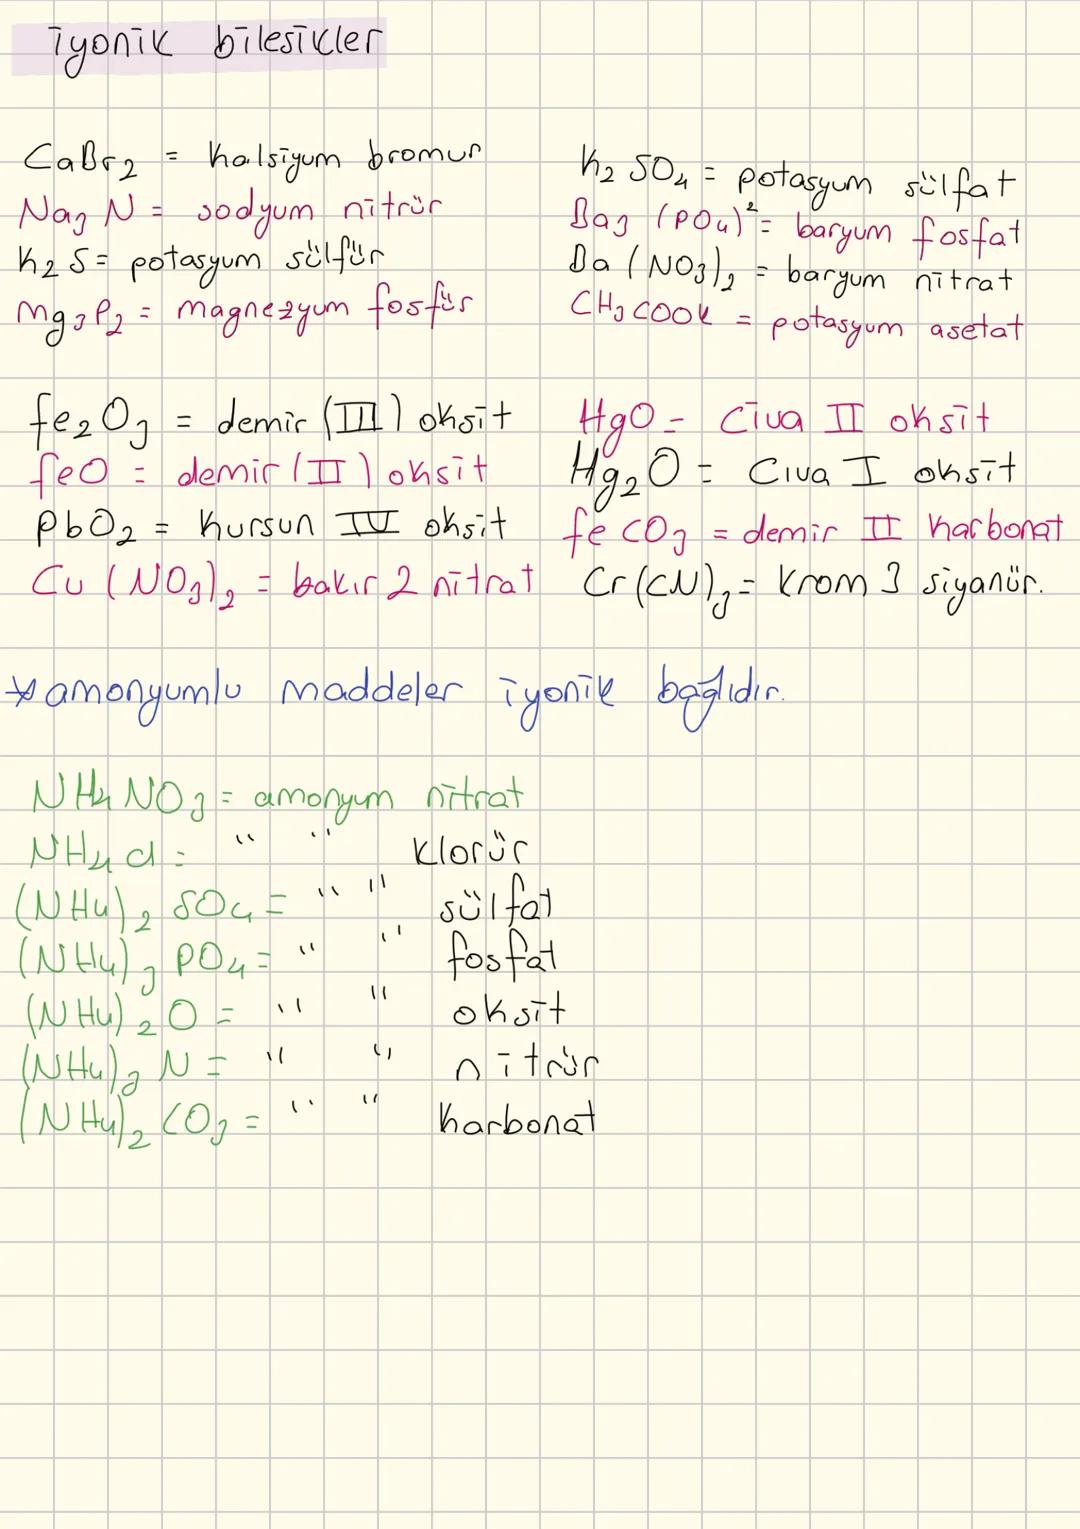 iyonik bilesikler
CaBr₂ = kalsiyum bromur
Na₃N = sodyum nitrür
K₂S = potasyum sülfür
Mg₃P₂ = magnezyum fosfür
K₂SO₄ = potasyum sülfat
Ba₃(PO₄)² = baryum fosfat
Ba(NO₃)₂ = baryum nitrat
CH₃COOK = potasyum asetat
fe₂O₃ = demir (III) oksit
feO = demir (II) oksit
PbO₂ = kursun IV oksit
Cu(NO₃)₂ = bakır 2 nitrat
HgO = Civa II oksit
Hg₂O = Cıva I oksit
feCO₃ = demir II karbonat
Cr(CN)₃ = Krom 3 siyanür.
* amonyumlu maddeler iyonik bağlıdır.
NH₄NO₃ = amonyum nitrat
NH₄Cl = " " klorür
(NH₄)₂SO₄ = " " sülfat
(NH₄)₃PO₄ = " " fosfat
(NH₄)₂O = " " oksit
(NH₄)₃N = " " nitrür
(NH₄)₂CO₃ = " " karbonat